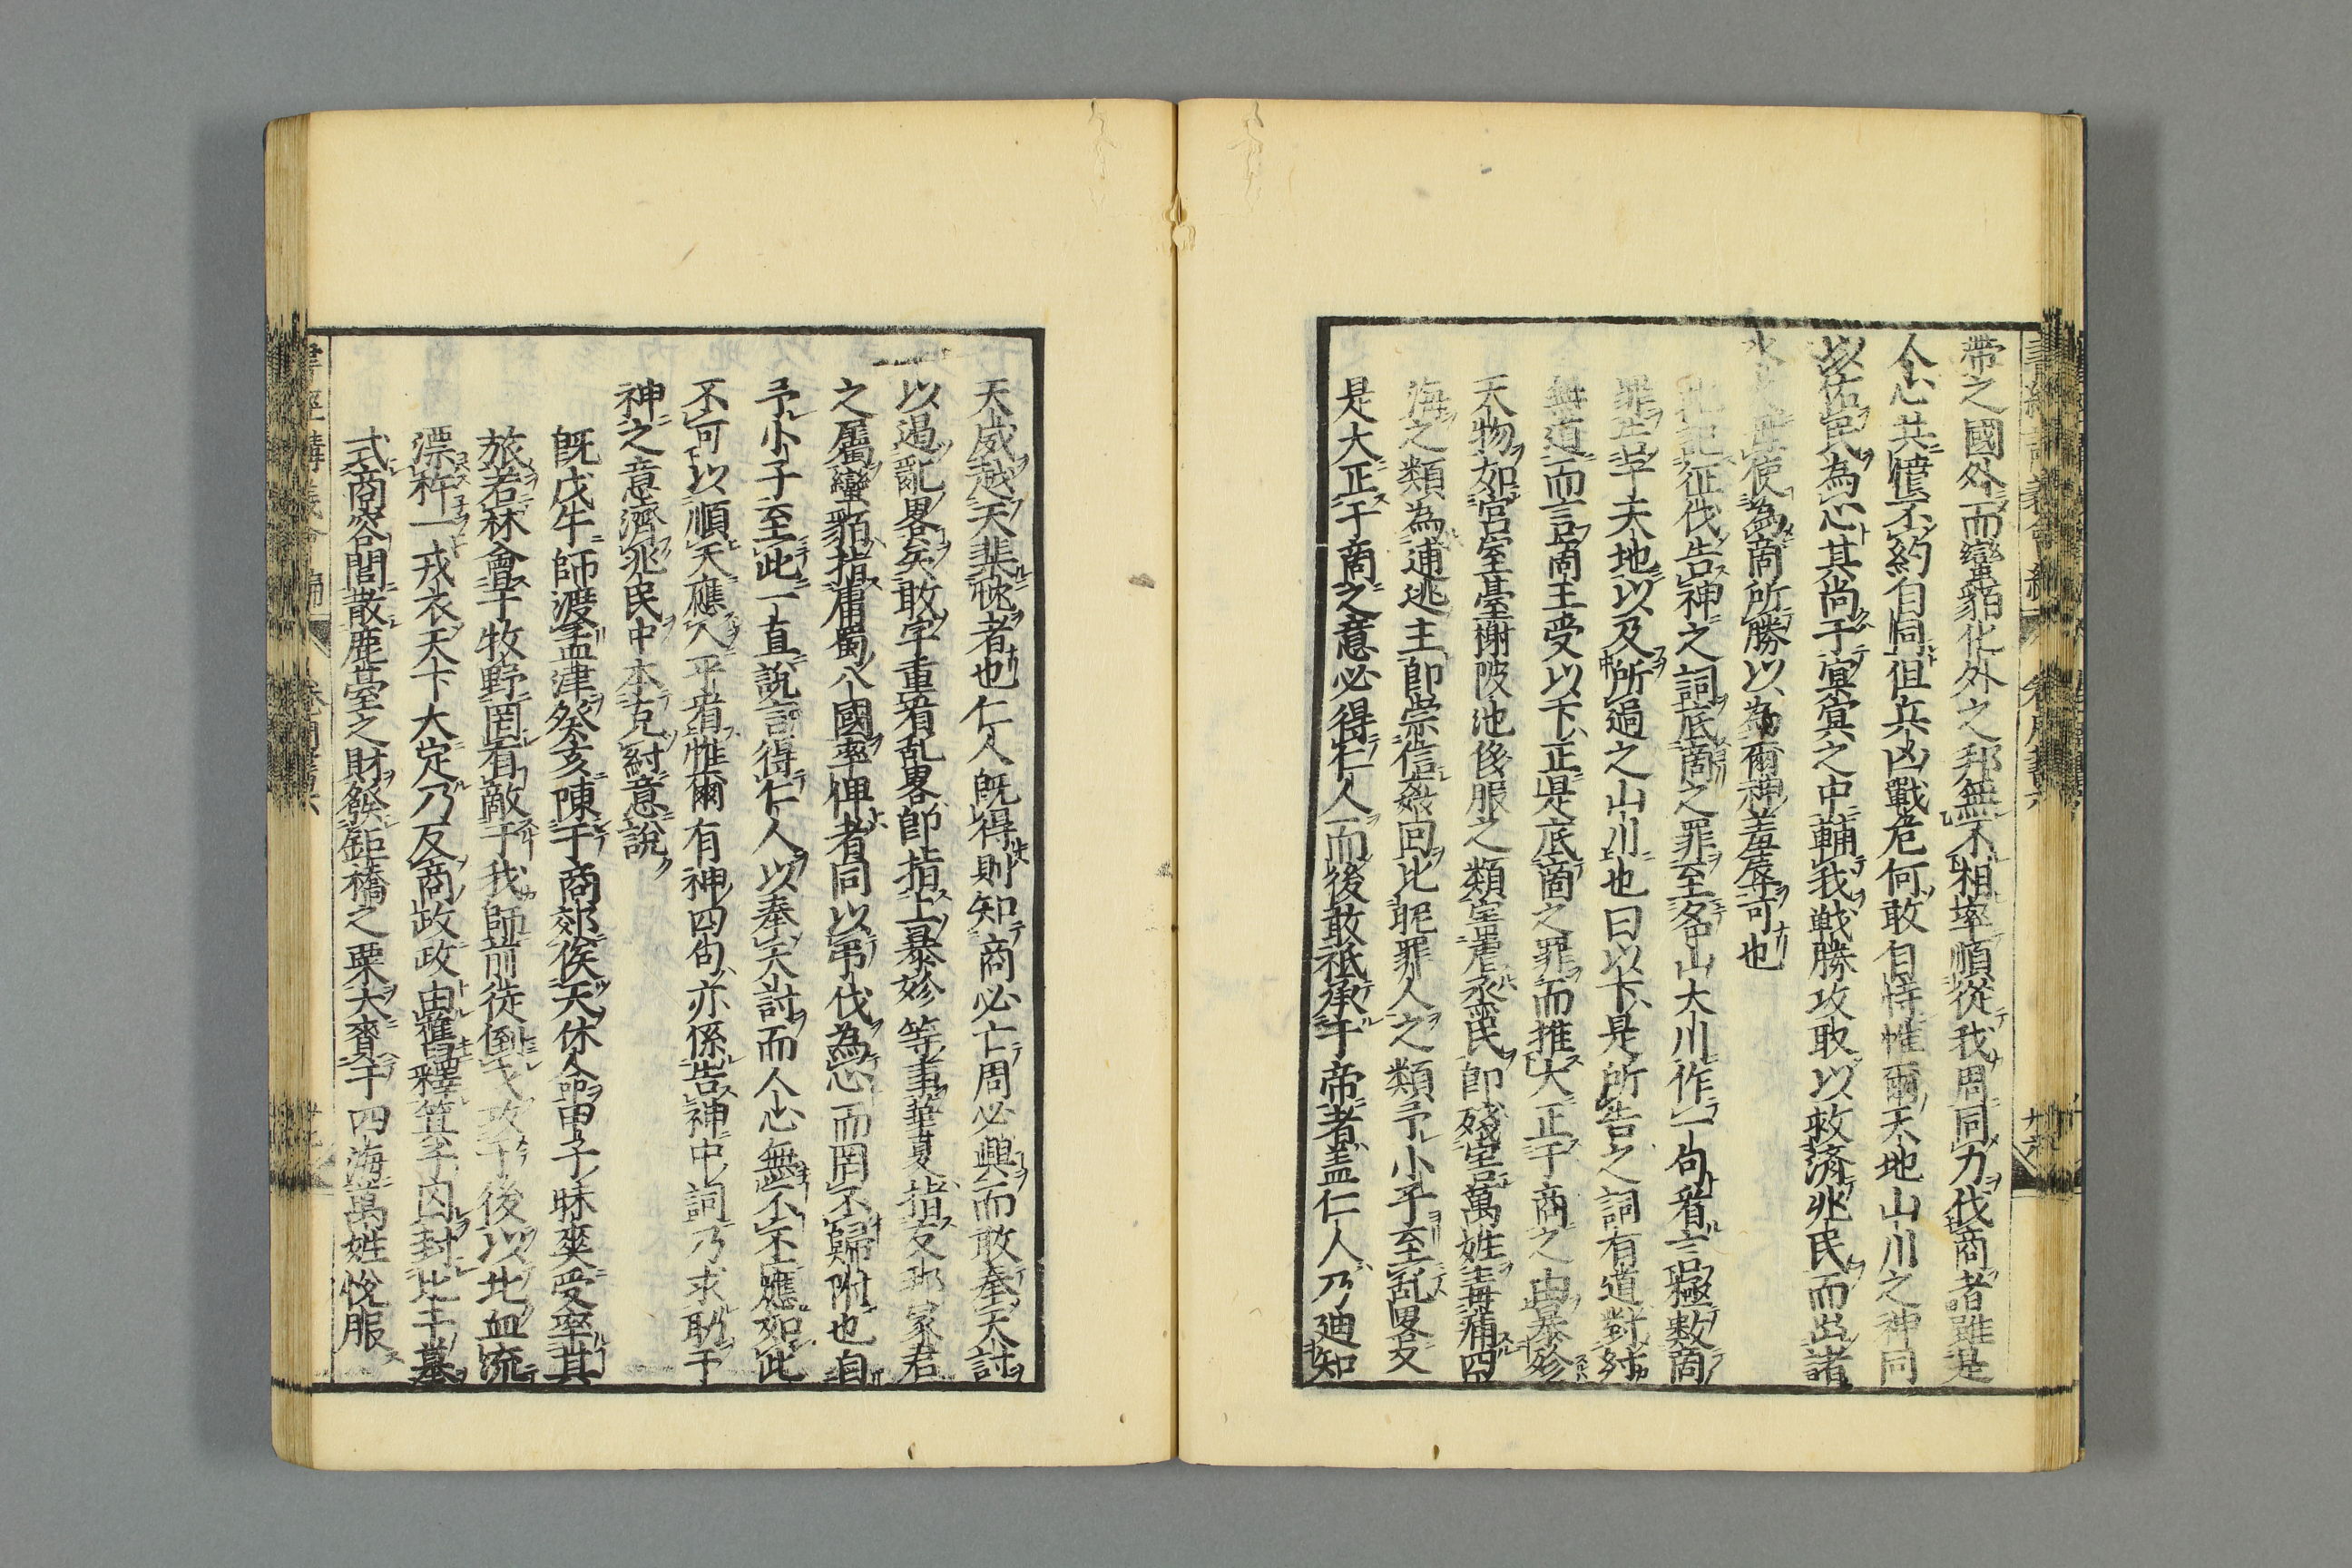 帶之國外而蠻貊化外之邦無不相率順從我周同力伐商者雖是
人心共憤不約自同但兵凶戰危何敢自恃惟爾天地山川之神同
以佑民為心其尚于冥冥之中輔我戦勝攻取以救済兆民而凶諸
水火毋使為商所勝以為爾神羞辱可也
此記征伐告神之詞底商之罪至名山大川作一句看言極數商
罪告皇天地以及所過之山川也曰以下是所告之詞有道對紂
無道而言商王受以下正是底商之罪而推大正于商之由暴殄
天物如宮室臺榭陂池侈服之類害虐烝民即殘害萬姓毒痡四
海之類為逋逃主即崇信姦回比昵罪人之類予小子至乱畧反
是大正于商之意必得仁人而後敢祗承于帝者盖仁人乃廸知
天威越天棐忱者也仁人既得則知商必亡周必興而敢奉天討
以遏亂畧矣敢字重看乱畧即指上暴殄等事華夏指友邦冢君
之屬蠻貊指庸蜀八國率俾者同以弔伐為心而罔不歸附也自
予小子至此一直說言得仁人以奉天討而人心無不應如此
不可以順天應人乎看惟爾有神四句亦係告神中詞乃求助于
神之意濟兆民中本克紂意說
既戊午師渡孟津癸亥陳于商郊俟天休命甲子昧爽受率其
旅若林會于牧野罔有敵于我師前徒倒戈攻于後以北血流
漂杵一戎衣天下大定乃反商政政由舊釋箕子囚封比干墓
式商容閭散鹿臺之財發鉅橋之粟大賚于四海萬姓悅服